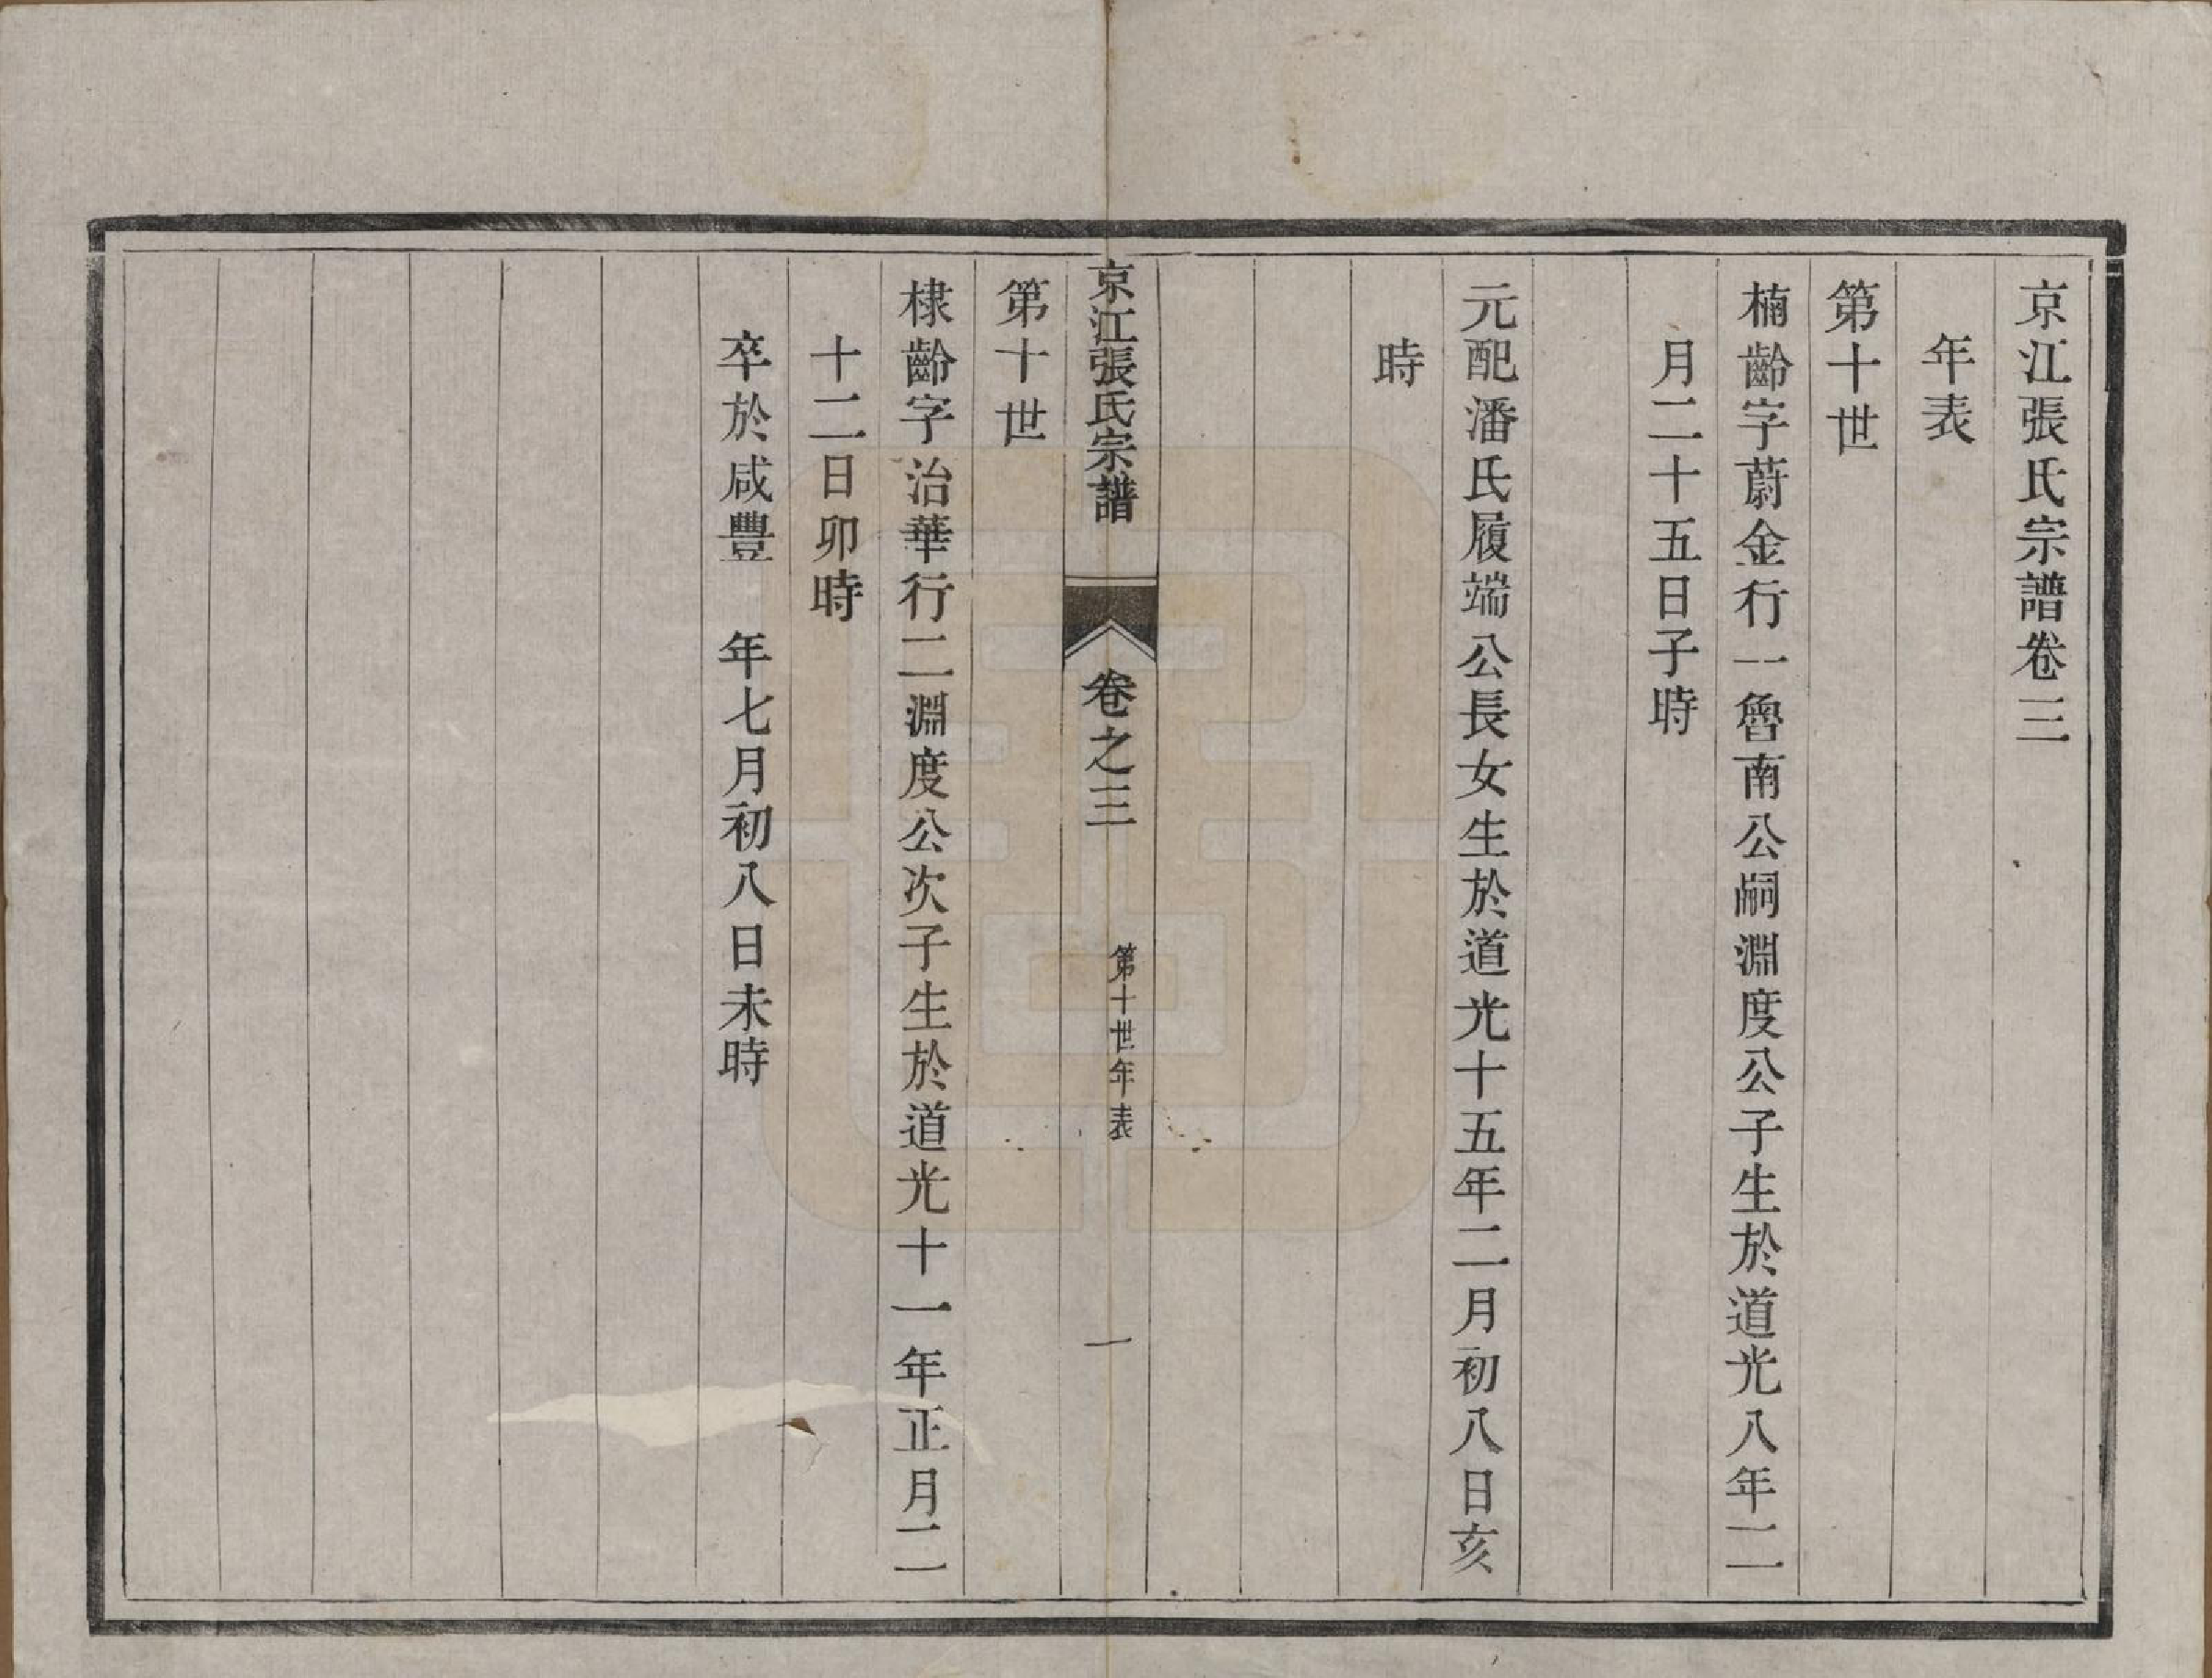 京江張氏宗譜卷三
年表
第十世
楠齡字蔚金行一魯南公嗣淵度公子生於道光八年二
月二十五日子時
元配潘氏履端公長女生於道光十五年二月初八日亥
時
京江張氏宗譜
卷之三
第十世年表
一
第十世
棣齡字治華行二淵度公次子生於道光十一年正月二
十二日卯時
卒於咸豐　年七月初八日未時